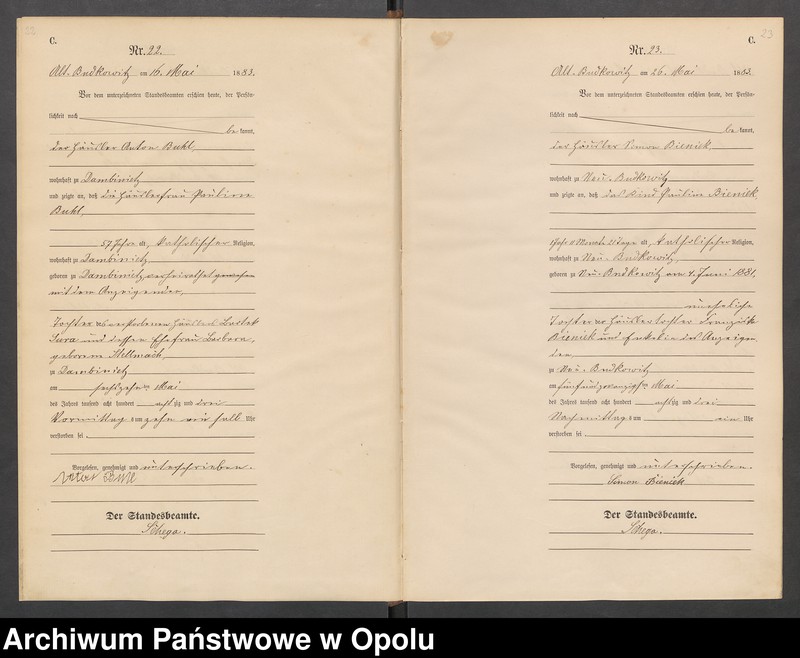 C.
Nr. 22.
Alt. Budkowitz am 16. Mai 1883.
Vor dem unterzeichneten Standesbeamten erschien heute, der Persön-
lichkeit nach
be kannt,
der Häusler Anton Buhl
wohnhaft zu Dambinietz
und zeigte an, daß die Häuslerfrau Pauline
Buhl
57 Jahre alt, katholischer Religion,
wohnhaft zu Dambinietz
geboren zu Dambinietz, verheirathet gewesen
mit dem Anzeigenden,
Tochter des verstorbenen Häuslers
Sura und dessen Ehefrau Barbara,
geborene
zu Dambinietz
am sechszehnten Mai
des Jahres tausend acht hundert achtzig und drei
Vormittags um zehn ein halb Uhr
verstorben sei.
Vorgelesen, genehmigt und unterschrieben.
Buhl
Der Standesbeamte.
C.
23
Nr. 23.
Alt. Budkowitz am 26. Mai 1883.
Vor dem unterzeichneten Standesbeamten erschien heute, der Persön-
lichkeit nach
be kannt,
der Häusler Simon Bieniek
wohnhaft zu Neu-Budkowitz
und zeigte an, daß das Kind Pauline Bieniek
1 Jahr 11 Monate 21 Tage alt, katholischer Religion,
wohnhaft zu Neu-Budkowitz,
geboren zu Neu-Budkowitz am 4. Juni 1881,
uneheliche
Tochter der Häuslertochter Franziska
Bieniek und Enkelin des Anzeigen
den
zu Neu-Budkowitz
am fünfundzwanzigsten Mai
des Jahres tausend acht hundert achtzig und drei
Nachmittags um ein Uhr
verstorben sei.
Vorgelesen, genehmigt und unterschrieben.
Simon Bieniek
Der Standesbeamte.
Archiwum Państwowe w Opolu